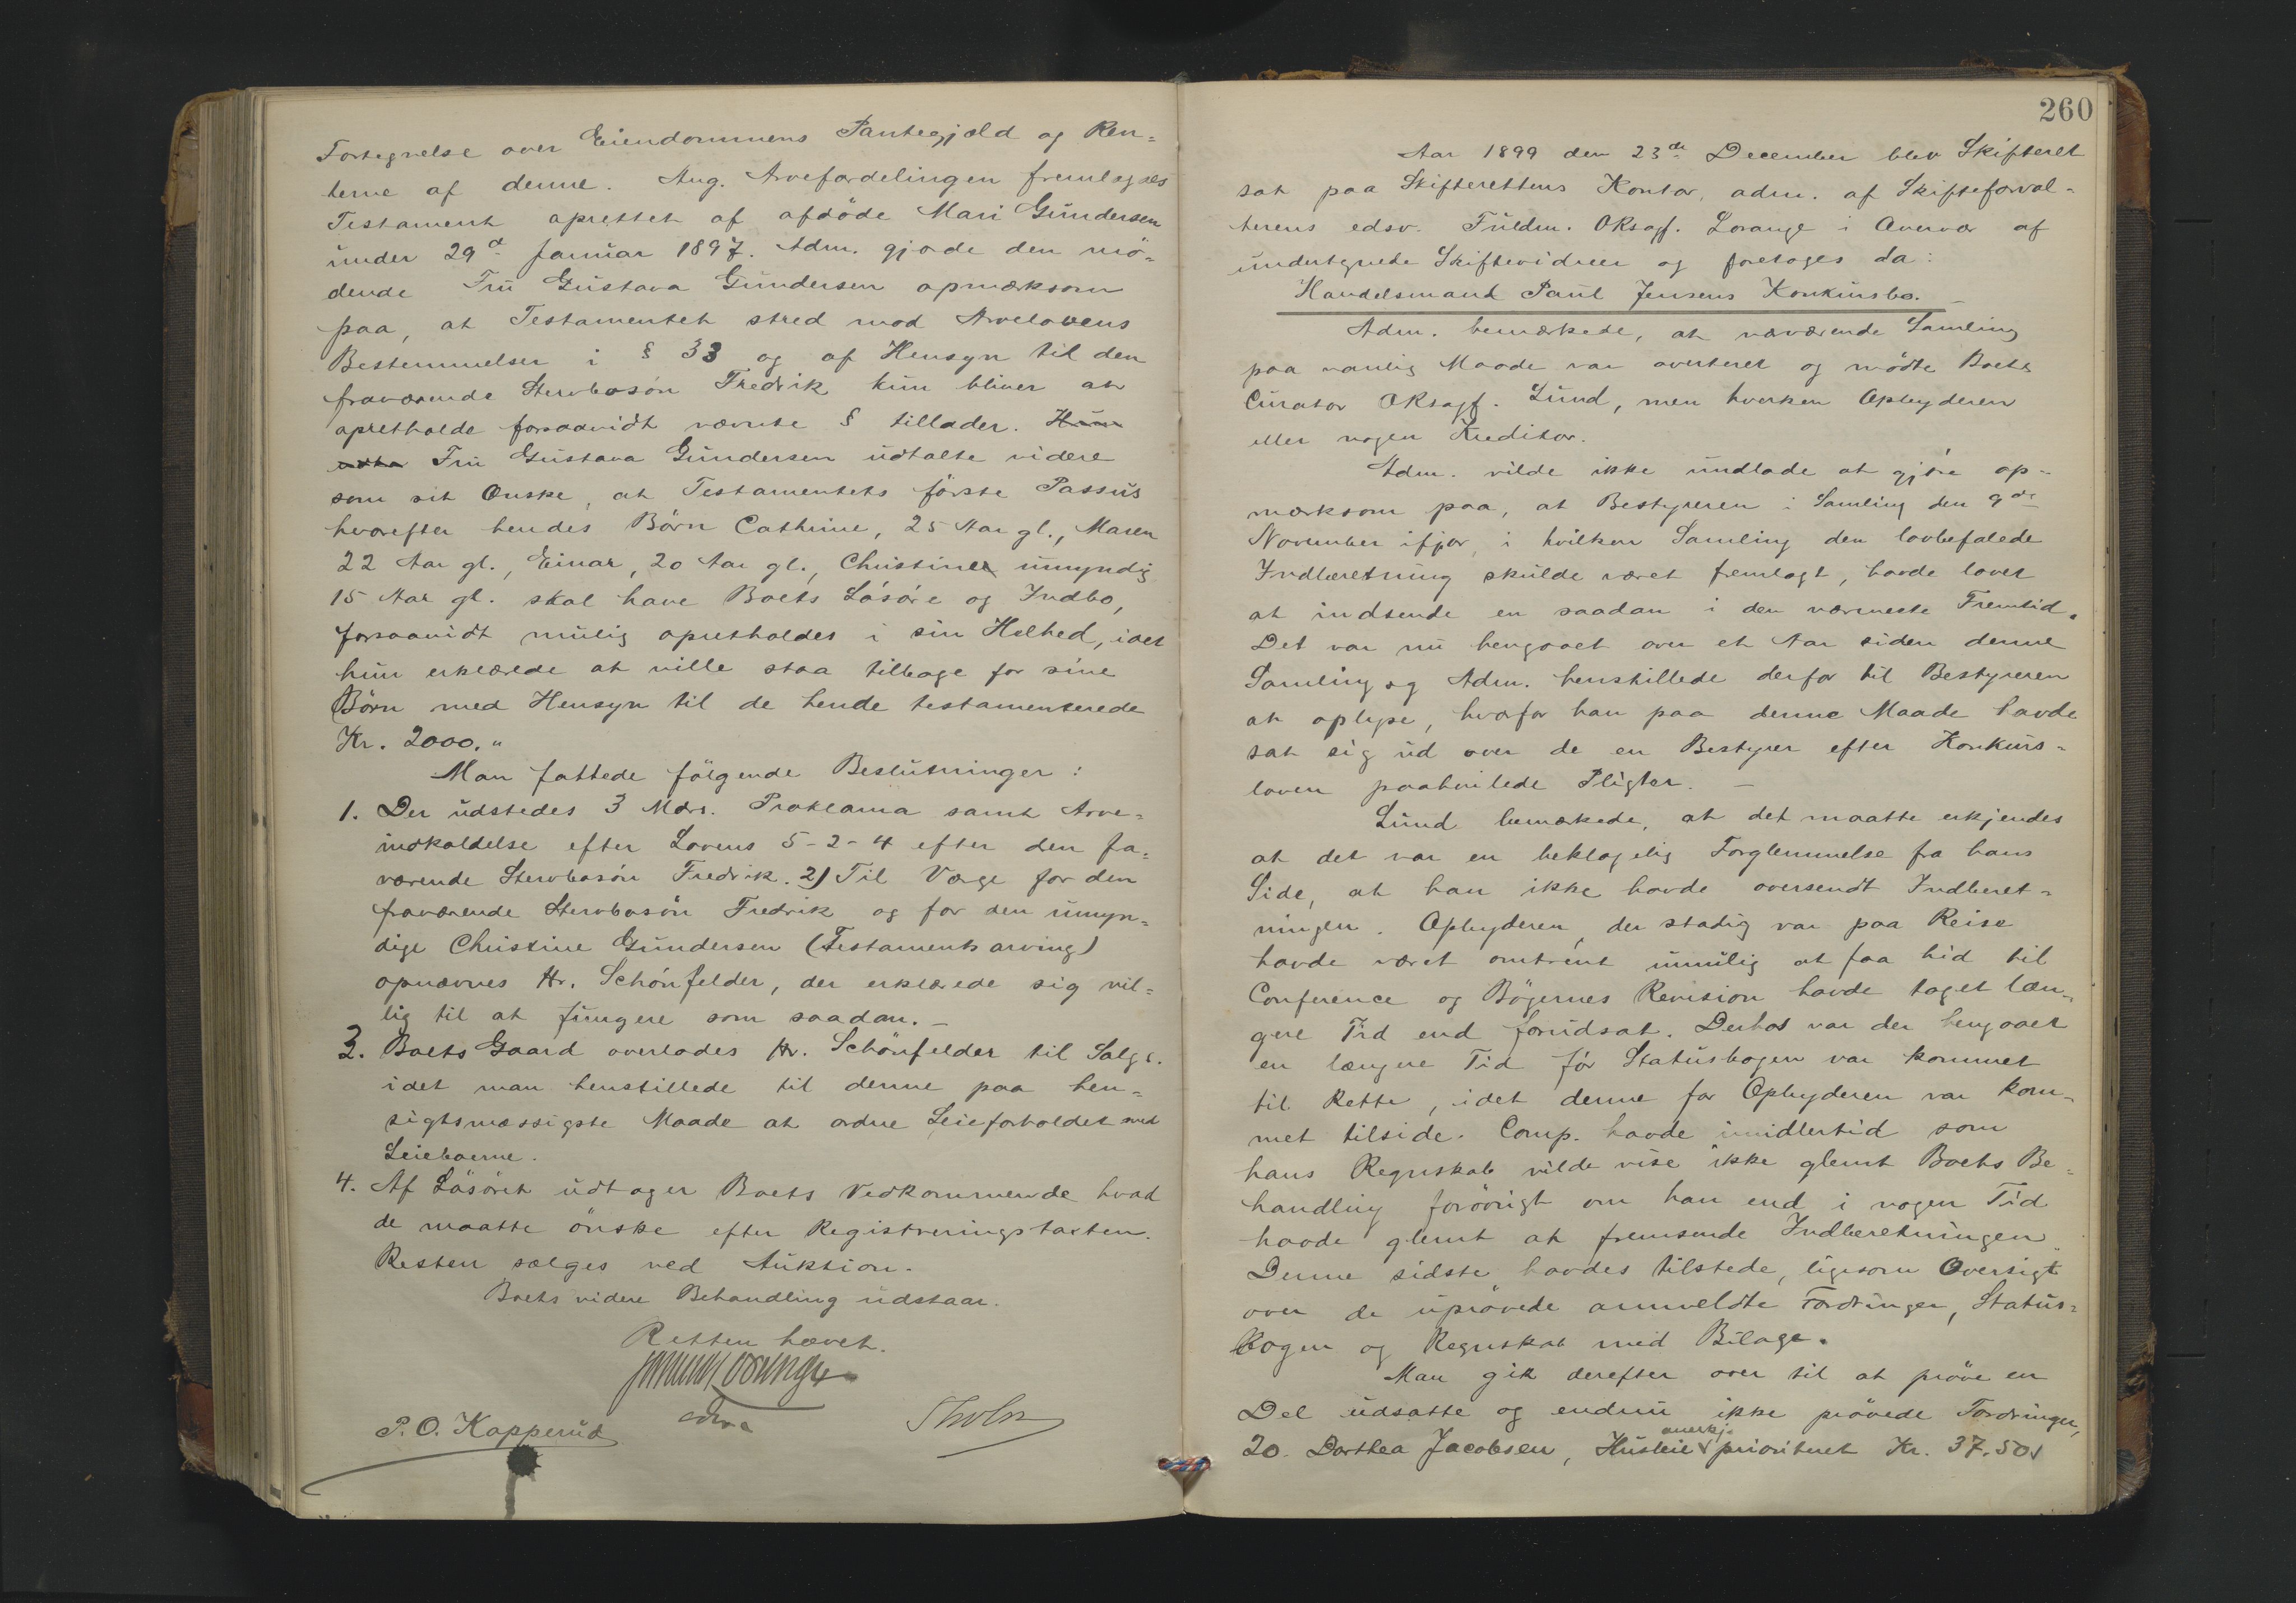 Fortegnelse over Eiendommens Pantegjæld og Ren-
terne af denne. Ang. Arvefordelingen fremlagdes
Testament oprettet af afdöde Mari Gundersen
under 29d Januar 1897. Adm. gjorde den mö-
dende Fru Gustava Gundersen opmærksom
paa, at Testamentet stred mod Arvelovens
Bestemmelser i § 33 og af Hensyn til den
fraværende Stervbosön Fredrik kun bliver at
opretholde forsaavidt nævnte § tillader. Hun
udta Fru Gustava Gundersen udtalte videre
som sit Önske, at Testamentets förste Passus
hvorefter hendes Börn Cathrine, 25 Aar gl., Maren
22 Aar gl., Einar, 20 Aar gl., Christine umyndig
15 Aar gl. skal have Boets Lösöre og Indbo,
forsaavidt mulig opretholdes i sin Helhed, idet
hun erklærede at ville staa tilbage for sine
Börn med Hensyn til de hende testamenterede
Kr. 2000."
Man fattede fölgende Beslutninger:
1. Der udstedes 3 Mdrs. Proklama samt Arve-
indkaldelse efter Lovens 5-2-4 efter den fra-
værende Stervbosön Fredrik. 2) Til Værge for den
fraværende Stervbosön Fredrik og for den umyn-
dige Christine Gundersen (Testamentsarving)
opnævnes Hr. Schönfelder, der erklærede sig vil-
lig til at fungere som saadan. –
3. Boets Gaard overlades Hr. Schönfelder til Salgs.
idet man henstillede til denne paa hen-
sigtsmæssigste Maade at ordne Leieforholdet med
Leieboerne.
4. Af Lösöret udtager Boets Vedkommende hvad
de maatte önske efter Registreringstaxten.
Resten sælges ved Auktion.
Boets videre Behandling udstaar.
Retten hævet.
P. O. Kapperud
260
Aar 1899 den 23de December blev Skifteret
sat paa Skifterettens Kontor, adm. af Skifteforval-
terens edsv. Fuldm. ORsagf. Lorange i Overvær af
undertegnede Skiftevidner og foretoges da:
Handelsmand Paul Jensens Konkursbo. –
Adm. bemærkede, at nærværende Samling
paa vanlig Maade var averteret og mödte Boets
Curator ORsagf. Lund, men hverken Opbyderen
eller nogen Kreditor.
Adm. vilde ikke undlade at gjöre op-
mærksom paa, at Bestyreren i Samling den 9de
November ifjor, i hvilken Samling den lovbefalede
Indberetning skulde været fremlagt, havde lovet
at indsende en saadan i den nærmeste Fremtid.
Det var nu hengaaet over et Aar siden denne
Samling og Adm. henstillede derfor til Bestyreren
at oplyse, hvorfor han paa denne Maade havde
sat sig ud over de en Bestyrer efter Konkurs-
loven paahvilede Pligter. –
Lund bemærkede, at det maatte erkjendes
at det var en beklagelig Forglemmelse fra hans
Side, at han ikke havde oversendt Indberet-
ningen. Opbyderen, der stadig var paa Reise
havde været omtrent umulig at faa hid til
Conference og Bögernes Revision havde taget læn-
gere Tid end forudsat. Derhos var der hengaaet
en længere Tid för Statusbogen var kommet
til Rette, idet denne for Opbyderen var kom-
met tilside. Comp. havde imidlertid som
hans Regnskab vilde vise ikke glemt Boets Be-
handling forövrigt om han end i nogen Tid
havde glemt at fremsende Indberetningen.
Denne sidste havdes tilstede, ligesom Oversigt
over de upróvede anmeldte Fordringer, Status-
bogen og Regnskab med Bilage.
Man gik derefter over til at pröve en
Del udsatte og endnu ikke prövede Fordringer,
anerkj.
20. Dorthea Jacobsen, Husleie prioriteret Kr. 37.50